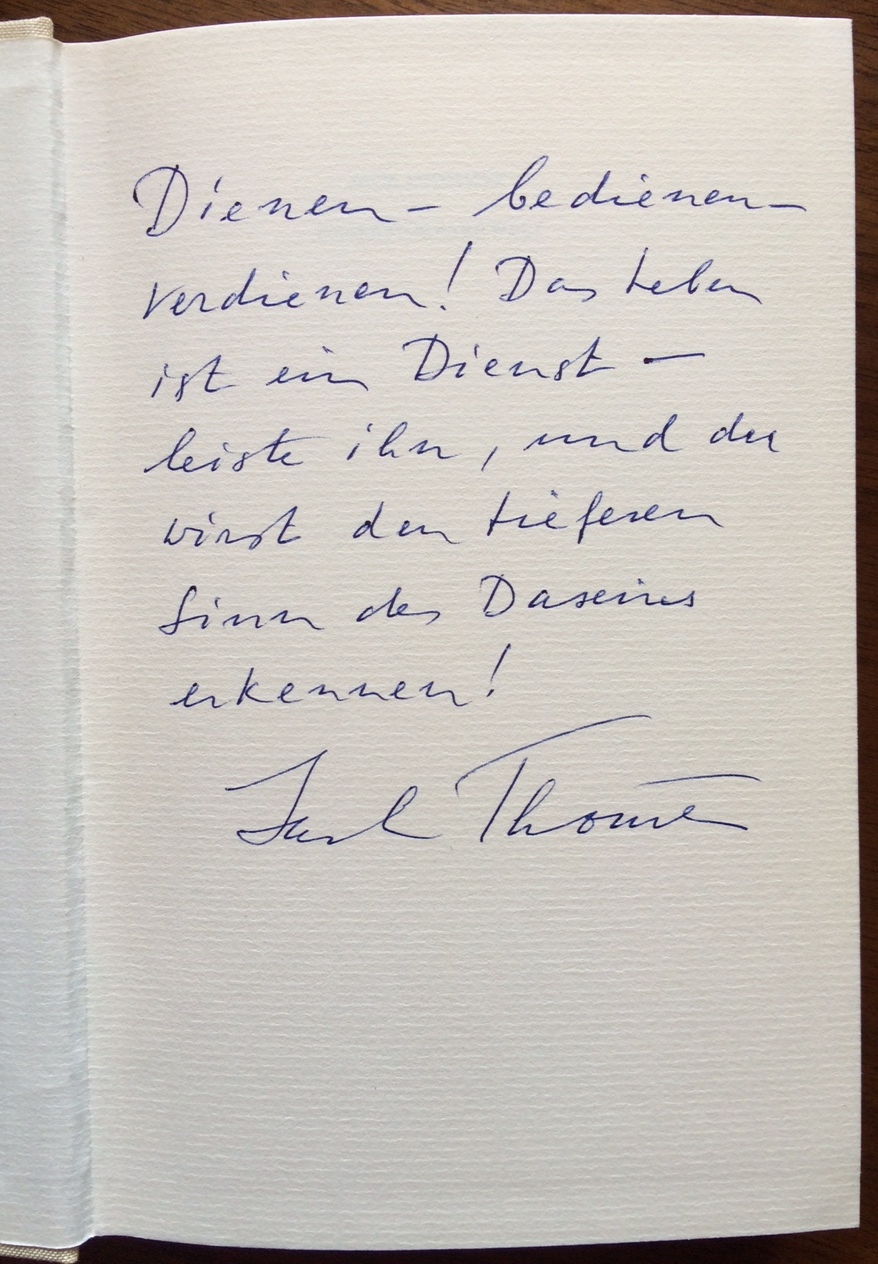 Dienen – bedienen –
verdienen! Das Leben
ist ein Dienst –
leiste ihn, und du
wirst den tieferen
Sinn des Daseins
erkennen!
Thomé